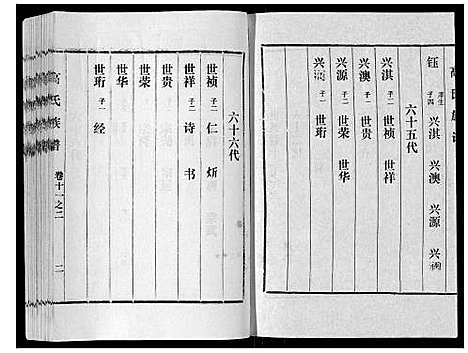 钰 庠生 子四 兴淇 兴澳 兴源
六十五代
兴淇 子二 世祯 世祥
兴澳 子一 世贵
兴源 子二 世荣 世华
子一 世珩
六十六代
世祯 子二 仁 炘
世祥 子二 诗 书
世贵
世荣
世华
世珩 子一 经
高氏族谱 卷十一之二 二